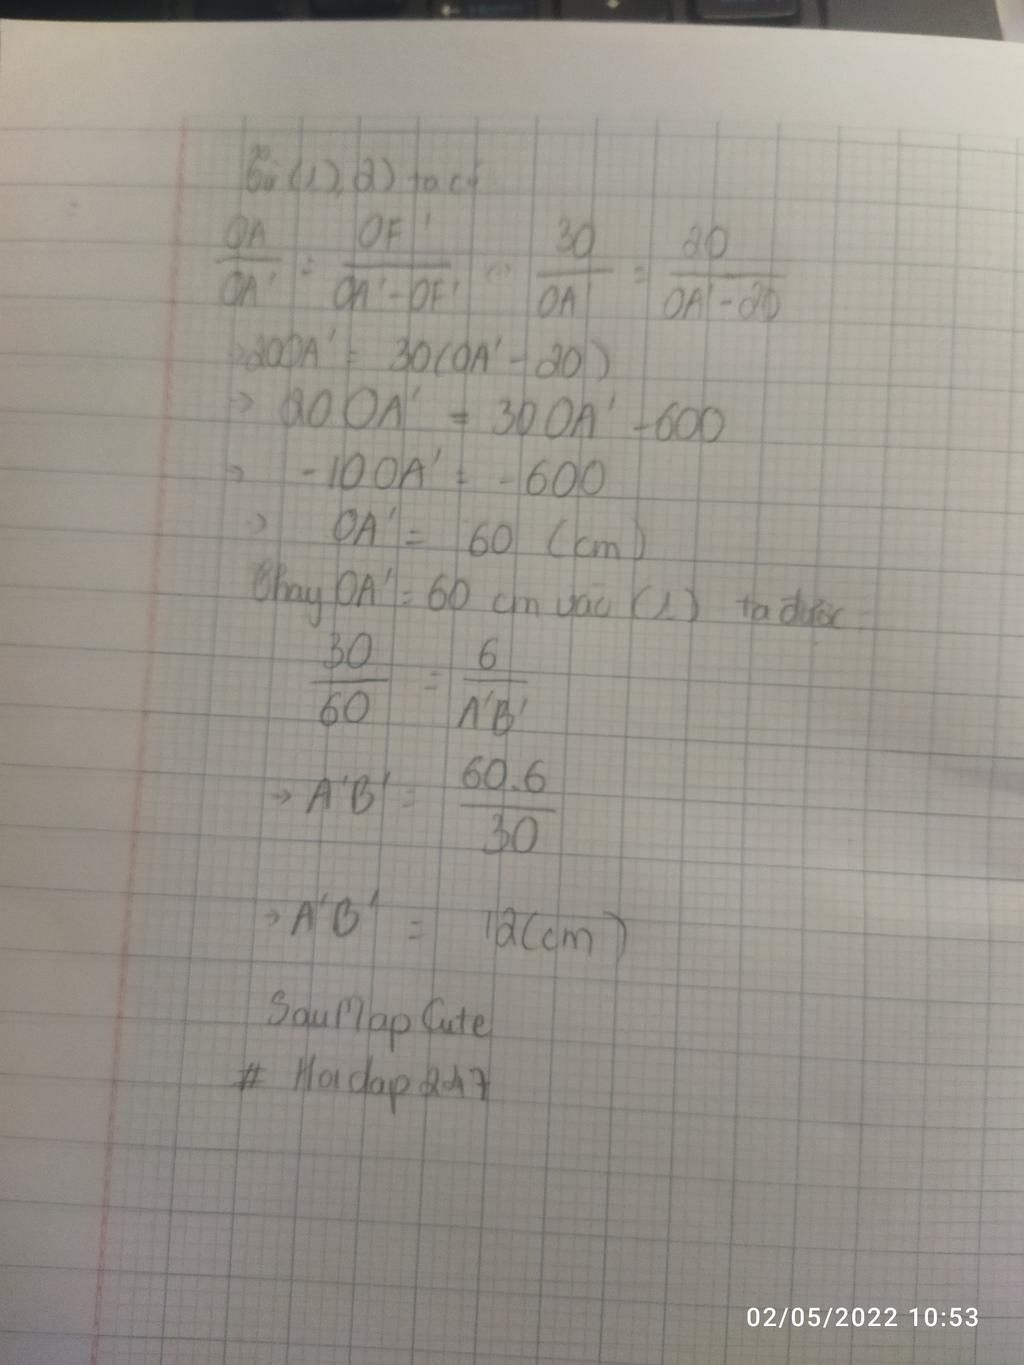 Từ (1), 2) ta có
OA/OA' = OF'/OA'-OF' 30/OA' = 20/OA'-20
→ 20OA' = 30(OA' - 20)
→ 20OA' = 30OA' - 600
→ -10OA' = -600
→ OA' = 60 (cm)
Thay OA' = 60 cm vào (1) ta được
30/60 = 6/A'B'
→ A'B' = 60.6/30
→ A'B' = 12(cm)
SauMapCute
# Hoidap247
02/05/2022 10:53